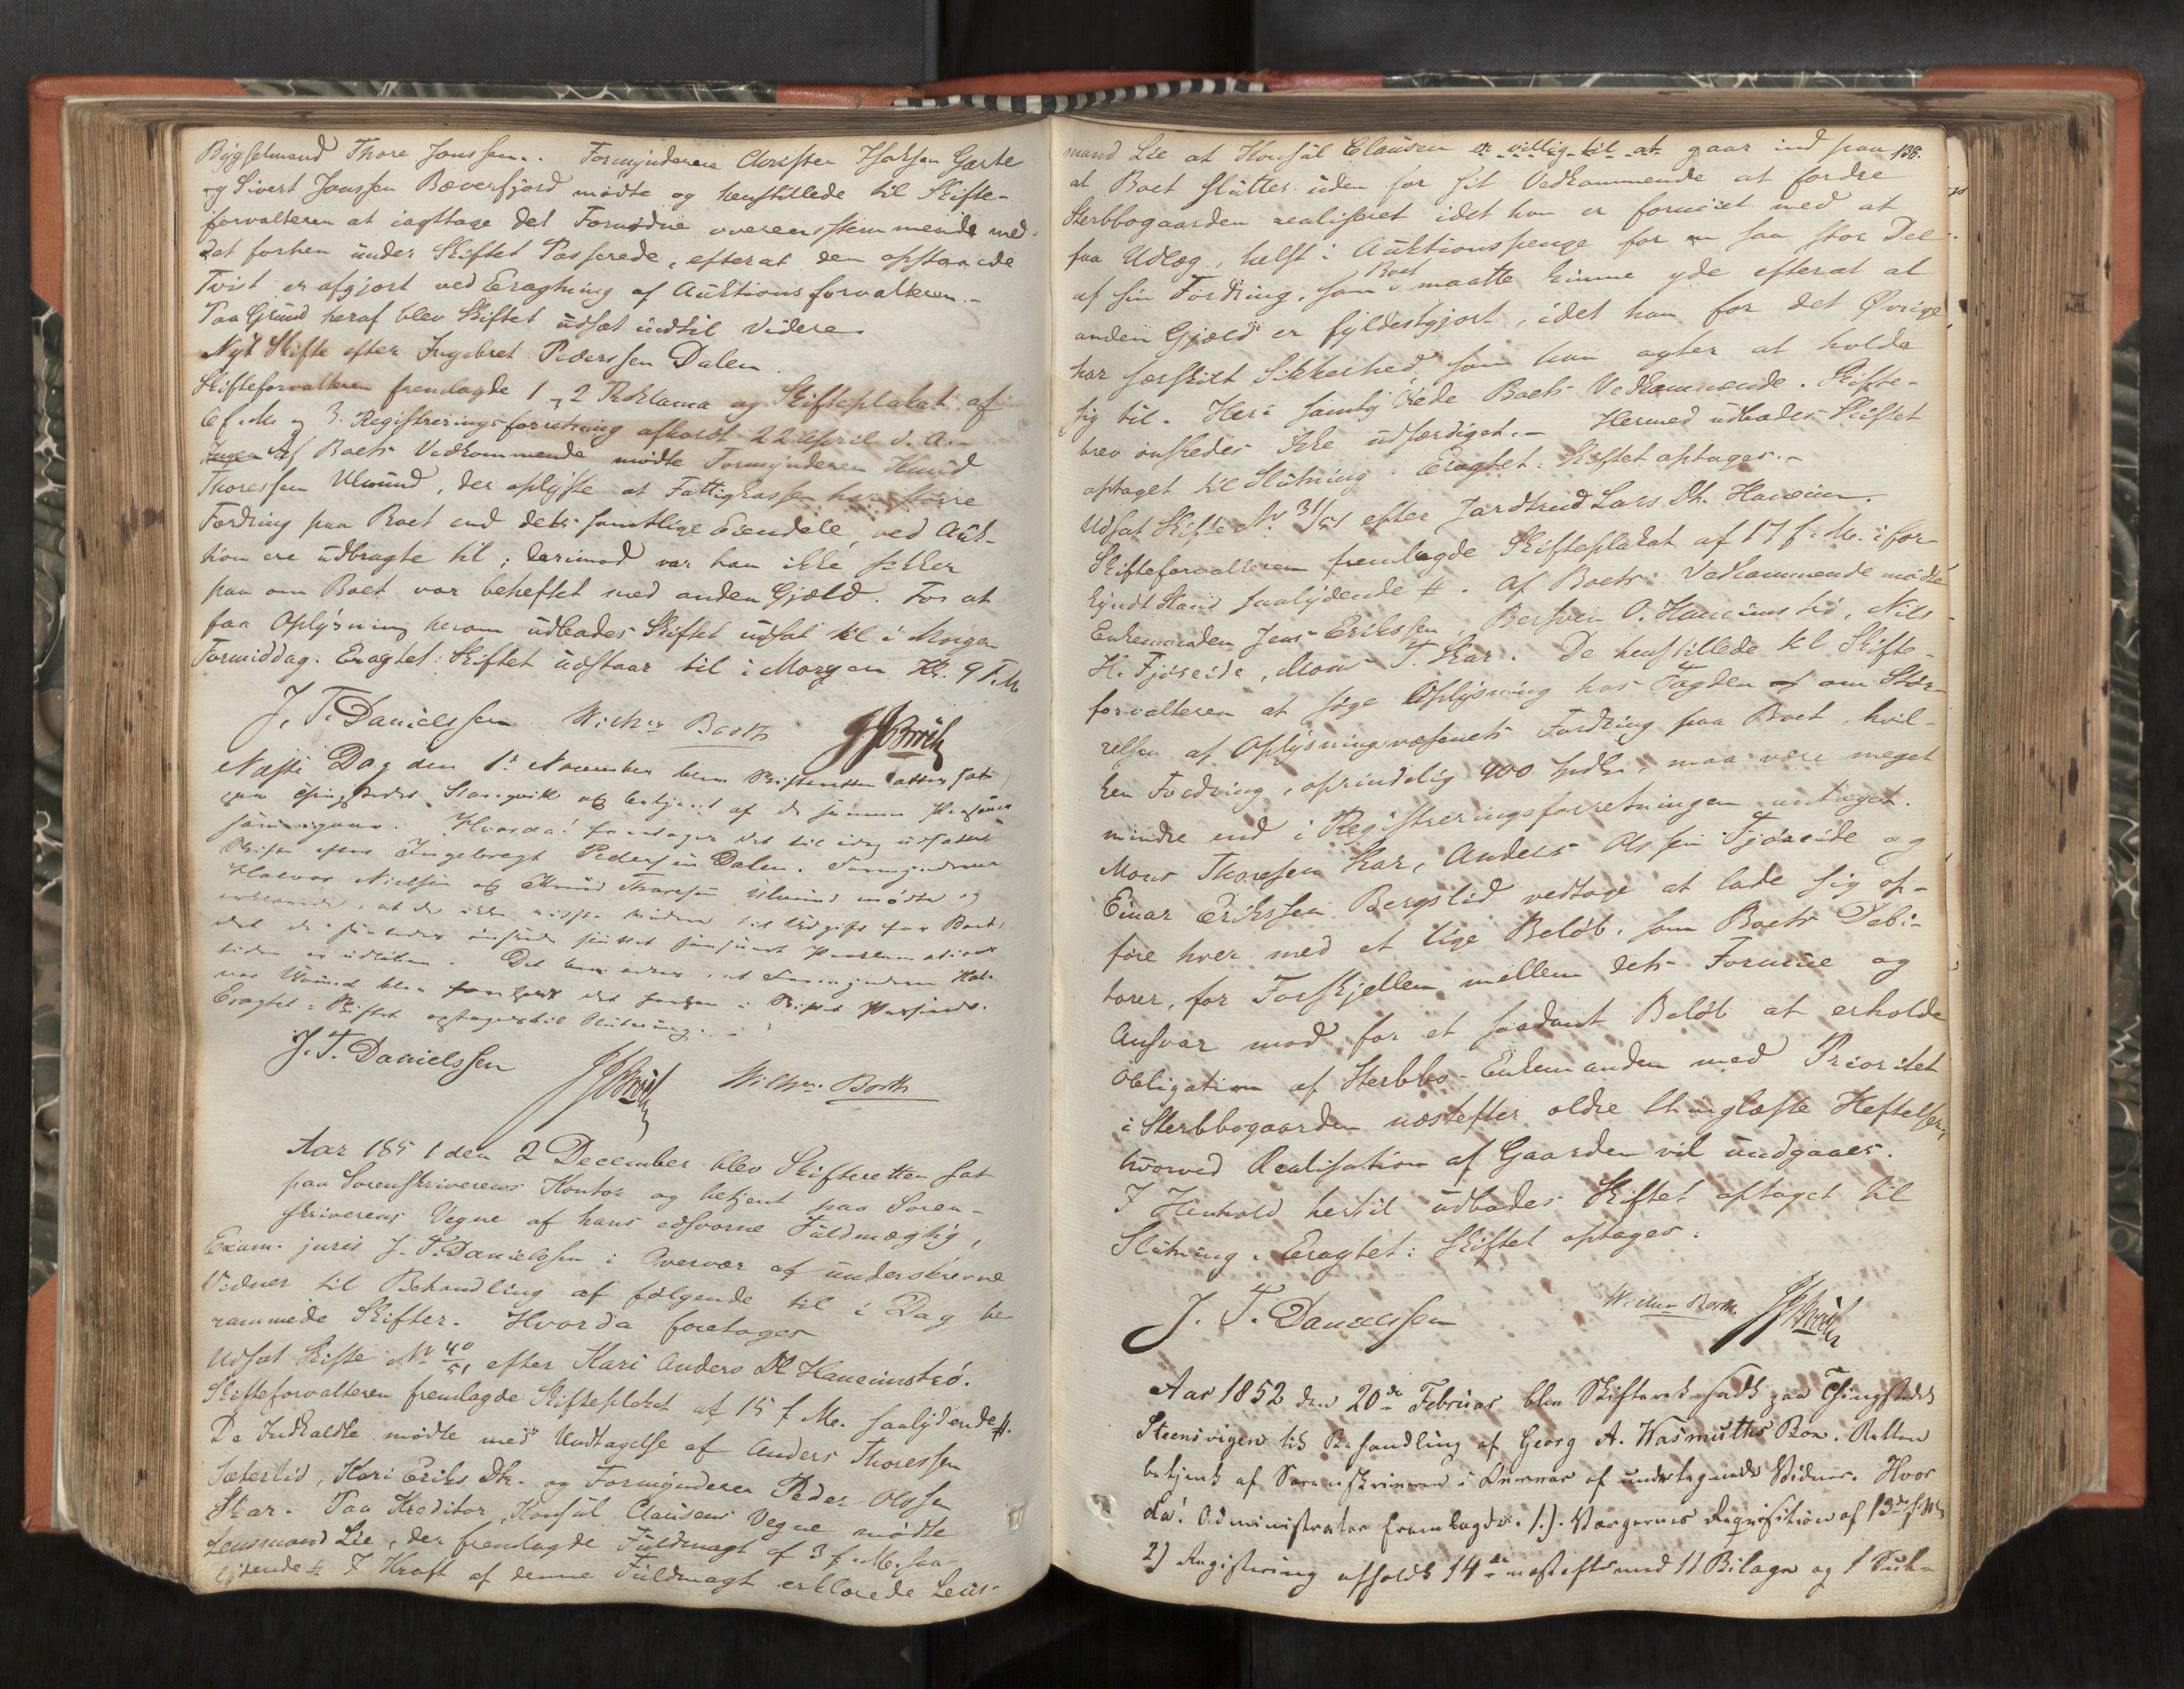 Bygselmand Thore Jonssen. Formynderne Christen Isaksen Garte
og Sivert Jonssen Bæverfjord mødte og henstillede til Skifte-
forvalteren at iagttage det Fornødne overensstemmende med
det forhen under Skiftet Passerede, efterat den opstaaede
Tvist er afgjort ved Eragtning af Auktionsforvalteren.-
Paa Grund heraf blev Skiftet udsat indtil Videre
Nyt Skifte efter Ingebret Pederssen Dalen.
Skifteforvalteren fremlagde 1 og 2 Proklama og Skifteplakat af
6 f. M. og 3. Registreringsforretning afholdt 22 April d. A.-
Af Boets Vedkommende mødte Formynderen Knud
Thoressen Ulvund, der oplyste at Fattigkassen har større
Fordring paa Boet end dets samtlige Eiendele, ved Auk-
tion ere udbragte til; derimod var han ikke sikker
paa om Boet var beheftet med anden Gjæld. For at
faa Oplysning herom udbades Skiftet udsat til i Morgen
Formiddag. Eragtet: Skiftet udstaar til i Morgen Kl. 9 F.M.
J. T. Danielssen Wilhm Barth
Næste Dag den 1ste November blev Skifteretten atter sat
paa Thingstedet Stangvik og betjent af de samme Personer
som igaar. Hvorda! foretoges det til idag udsatte
Skifte efter Ingebregt Pedersen Dalen. Formynderne
Halvor Nielsen og Knud Thoresen Ulvund mødte og
erklærede, at de ikke vidste videre til Udgift for Boet,
det de saaledes ønskede sluttet saasnart Proklamations
tiden er udløben. Det bemærkes, at Formynderen Hal-
vor Ulvund blev foreholdt det forhen i Skiftet Passerede.
Eragtet: Skiftet optages til Slutning.-
J. T. Danielssen Wilhm. Barth
Aar 1851 den 2 December blev Skifteretten sat
paa Sorenskriverens Kontor og betjent paa Soren-
skriverens Vegne af hans edsvorne Fuldmægtig,
Exam. juris J. T. Danielssen i Overvær af underskrevne
Vidner til Behandling af følgende til i Dag be-
rammede Skifter. Hvorda foretoges
Udsat Skifte No 40/51 efter Kari Anders Dt. Haneimstrø.
Skifteforvalteren fremlagde Skifteplakat af 15 f. M. saalydende #.
De Indkaldte mødte med Undtagelse af Anders Thoressen
Sæterlid, Kari Eriks Dtr. og Formynderen Peder Olssen
Skar. Paa Kreditor, Konsul Clausens Vegne mødte
Lensmand Lie, der fremlagde Fuldmagt af 3 f. M. saa-
lydende #. I Kraft af denne Fuldmagt erklærede Lens-
138.
mand Lie at Konsul Clausen er villig til at gaar ind paa
at Boet sluttes uden for sit Vedkommende at fordre
Sterbbogaarden realiseret idet han er fornøiet med at
faa Udlæg, helst i Auktionspenge for en saa stor Del
af sin Fordring, som Boet maatte kunne yde efterat al
anden Gjæld er fyldestgjort, idet han for det Øvrige
har særskilt Sikkerhed som han agter at holde
sig til. Heri samtykkede Boets Vedkommende. Skifte-
brev ønskedes ikke udfærdiget.- Hermed udbades Skiftet
optaget til Slutning. Eragtet: Skiftet optages.-
Udsat Skifte No 31/51 efter Jardtrud Lars Dt. Haneim.
Skifteforvalteren fremlagde Skifteplakat af 17 f. M. i for-
kyndt Stand saalydende #. Af Boets Vedkommende mødte
Enkemanden Jens Erikssen, Bersven O. Haneimstrø, Nils
H. Fjøseide, Mons T. Skar. De henstillede til Skifte-
forvalteren at søge Oplysning hos Fogden om Stør-
relsen af Oplysningsvæsenets Fordring paa Boet, hvil-
ken Fordring, oprindelig 400 Spdlr. maa være meget
mindre end i Registreringsforretningen antaget.
Mons Thoresen Skar, Anders Olssen Fjøseide og
Einar Erikssen Bergslid vedtoge at lade sig op-
føre hver med et lige Beløb, som Boets Debi-
torer, for Forskjellen mellem dets Formue og
Ansvar mod, for et saadant Beløb at erholde
Obligation af Sterbbo-Enkemanden med Prioritet
i Sterbbogaarden næstefter ældre thinglæste Heftelser,
hvorved Realisation af Gaarden vil undgaaes.
I Henhold hertil udbades Skiftet optaget til
Slutning. Eragtet: Skiftet optages.
J. T. Danielssen Wilhm Barth.
Aar 1852 den 20de Februar blev Skifteret sadt paa Thingstedet
Steensvigen til Behandling af Georg A. Wasmuths Boe. Retten
betjent af Sorenskriveren i Overvær af undertegnede Vidner. Hvor
da! Administrator fremlagde. 1.). Værgernes Requisition af 13de f. M.
2) Registrering afholdt 14de næstefter med 11 Bilage og 1 Sub-